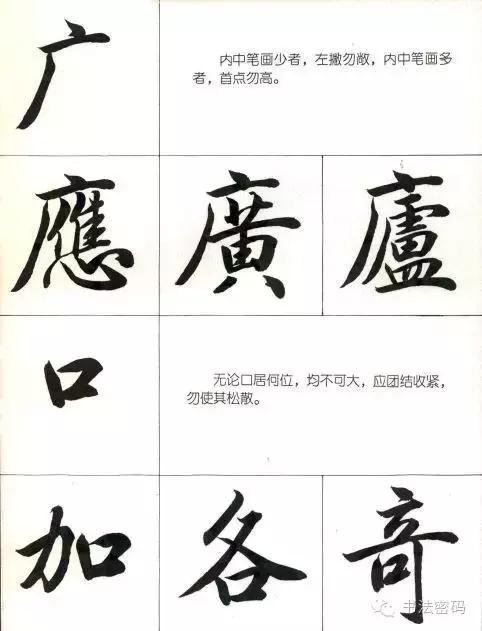 广
内中笔画少者，左撇勿敞，内中笔画多
者，首点勿高。
應 廣 廬
口
无论口居何位，均不可大，应团结收紧，
勿使其松散。
加 各 奇
书法密码